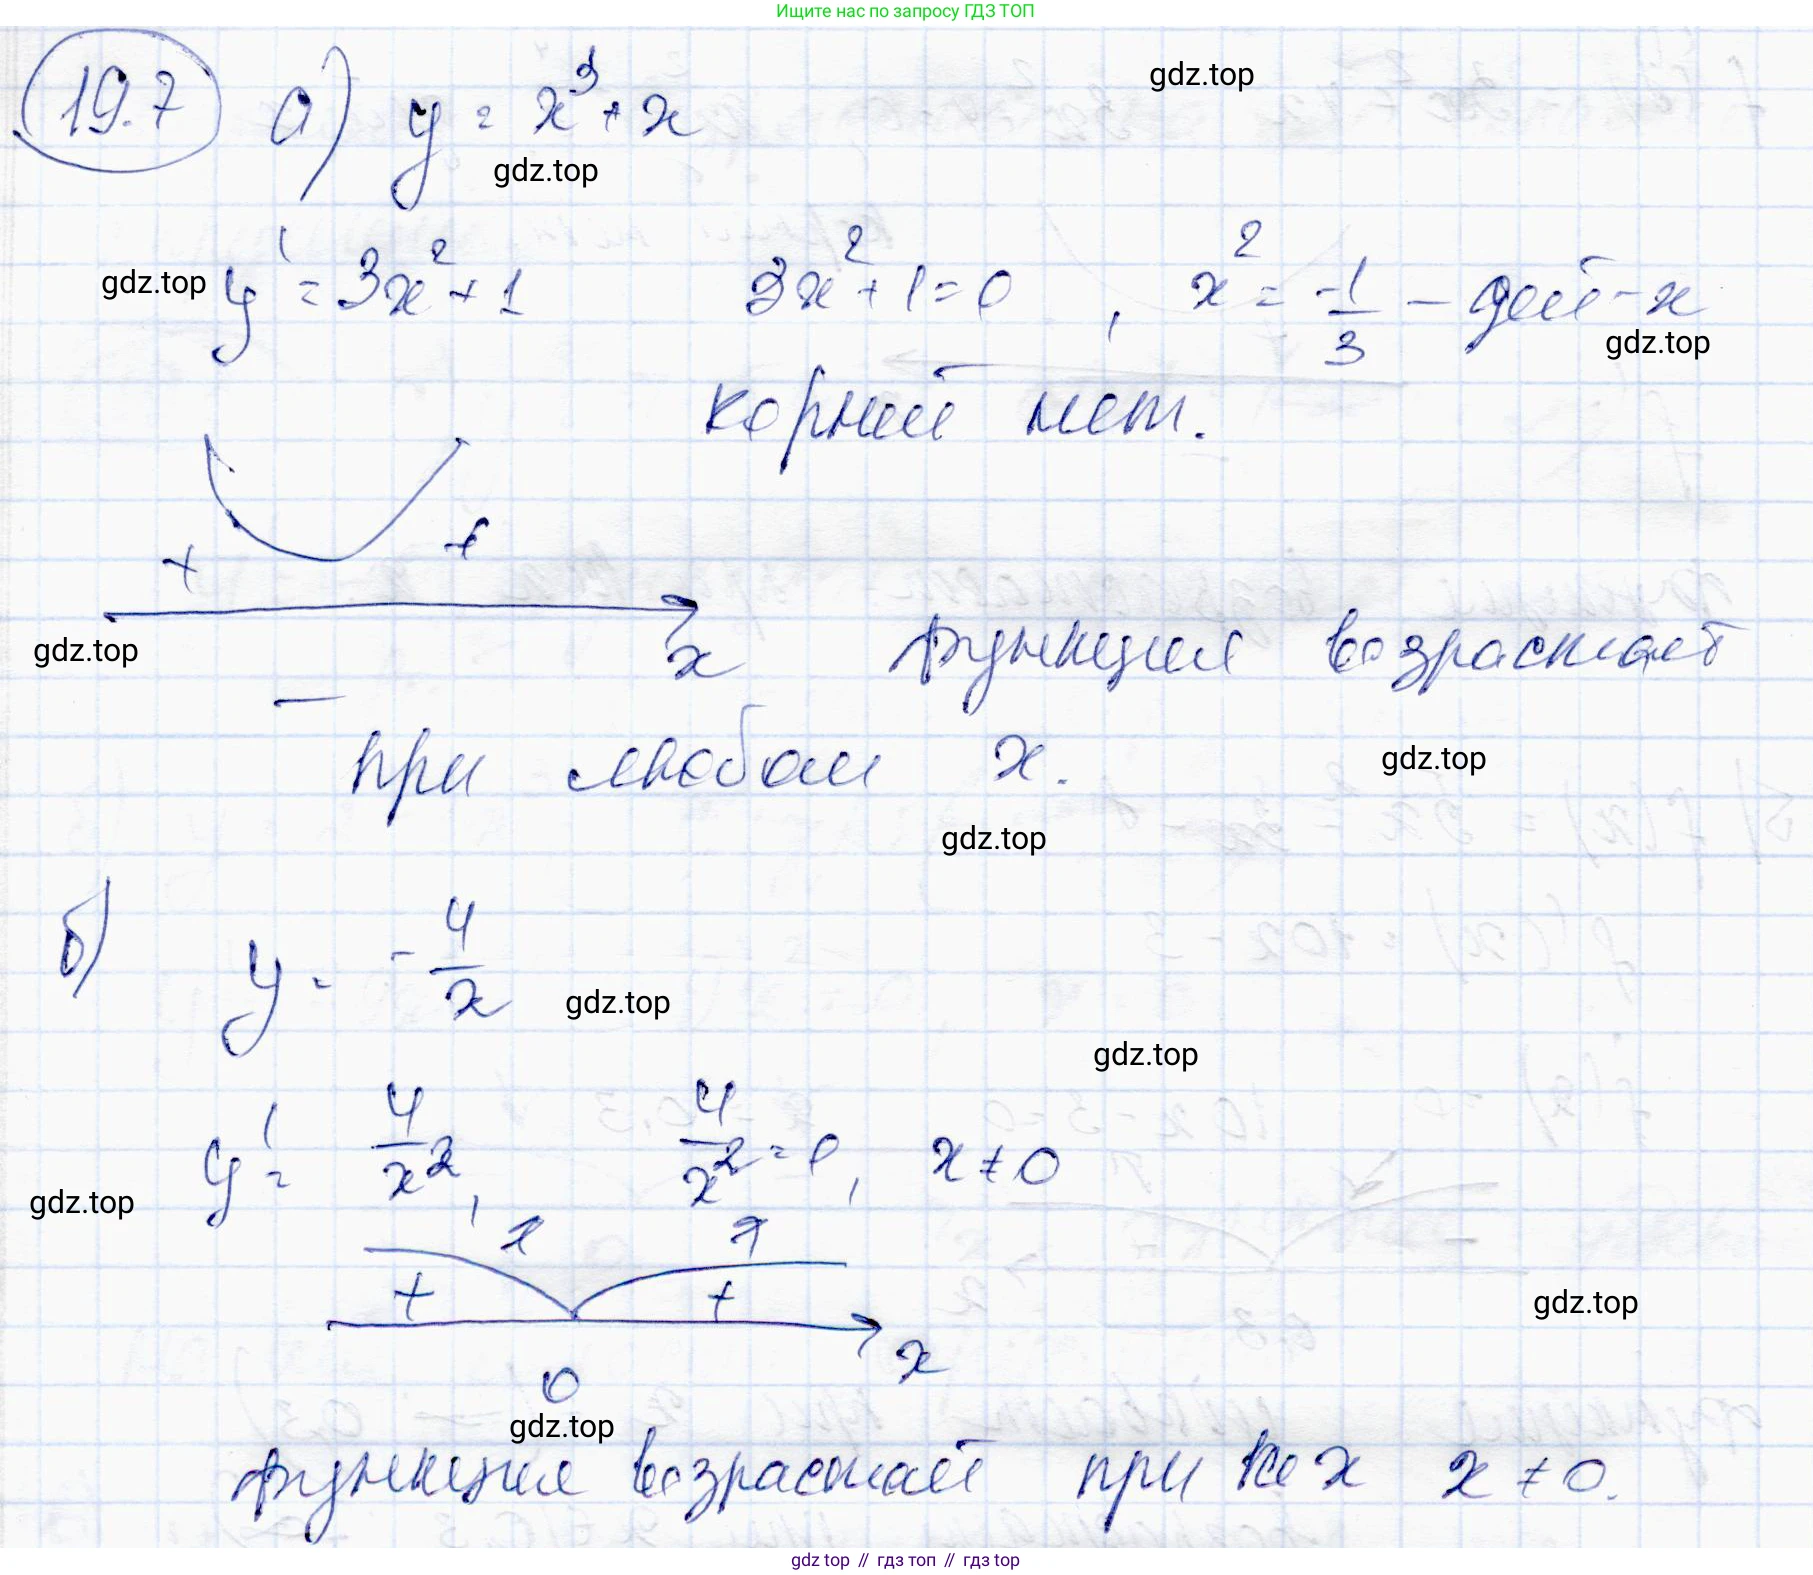 Ищите нас по запросу ГДЗ ТОП
19.7 а) y = x³ + x
gdz.top
gdz.top
gdz.top y' = 3x² + 1 3x² + 1 = 0 , x² = -1/3 – дей-х
gdz.top
корней нет.
+ +
gdz.top x функция возрастает
– при любом x.
gdz.top
gdz.top
б) y = -4/x
gdz.top
gdz.top
y' = 4/x², 4/x² = 0, x ≠ 0
gdz.top
+ +
gdz.top
x
0
gdz.top
функция возрастает при всех x ≠ 0.
gdz top // гдз топ // гдз top